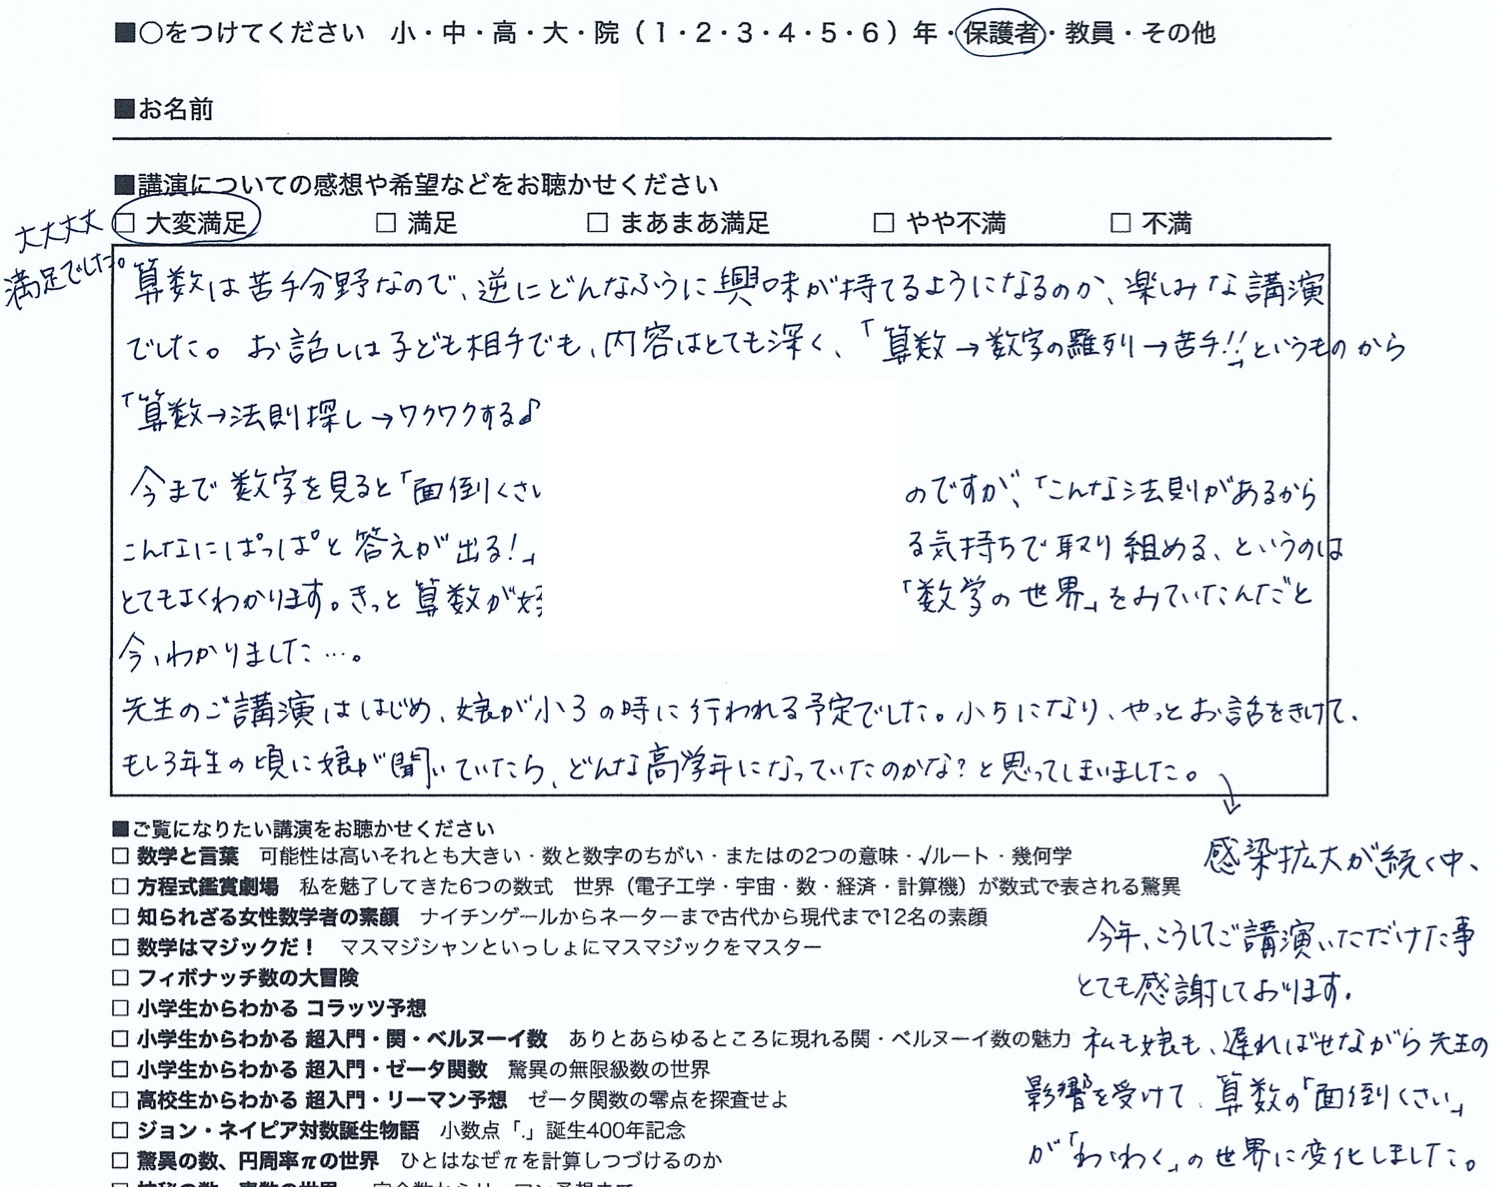 ■○をつけてください 小・中・高・大・院（1・2・3・4・5・6）年・保護者・教員・その他
■お名前
■講演についての感想や希望などをお聴かせください
□ 大変満足 □ 満足 □ まあまあ満足 □ やや不満 □ 不満
大大大大
満足でした。
算数は苦手分野なので、逆にどんなふうに興味が持てるようになるのか、楽しみな講演
でした。お話しは子ども相手でも、内容はとても深く、「算数→数字の羅列→苦手!!」というものから
「算数→法則探し→ワクワクする♪
今まで数字を見ると「面倒くさい のですが、「こんな法則があるから
こんなにぱっぱと答えが出る!」 る気持ちで取り組める、というのは
とてもよくわかります。きっと算数が好 「数学の世界」をみていたんだと
今、わかりました…。
先生のご講演ははじめ、娘が小3の時に行われる予定でした。小5になり、やっとお話をきけて、
もし3年生の頃に娘が聞いていたら、どんな高学年になっていたのかな?と思ってしまいました。
■ご覧になりたい講演をお聴かせください
□ 数学と言葉 可能性は高いそれとも大きい・数と数字のちがい・またはの2つの意味・√ルート・幾何学
□ 方程式鑑賞劇場 私を魅了してきた6つの数式 世界（電子工学・宇宙・数・経済・計算機）が数式で表される驚異
□ 知られざる女性数学者の素顔 ナイチンゲールからネーターまで古代から現代まで12名の素顔
□ 数学はマジックだ！ マスマジシャンといっしょにマスマジックをマスター
□ フィボナッチ数の大冒険
□ 小学生からわかる コラッツ予想
□ 小学生からわかる 超入門・関・ベルヌーイ数 ありとあらゆるところに現れる関・ベルヌーイ数の魅力
□ 小学生からわかる 超入門・ゼータ関数 驚異の無限級数の世界
□ 高校生からわかる 超入門・リーマン予想 ゼータ関数の零点を探査せよ
□ ジョン・ネイピア対数誕生物語 小数点「.」誕生400年記念
□ 驚異の数、円周率πの世界 ひとはなぜπを計算しつづけるのか
感染拡大が続く中、
今年、こうしてご講演いただけた事
とても感謝しております。
私も娘も、遅ればせながら先生の
影響を受けて、算数の「面倒くさい」
が「わくわく」の世界に変化しました。